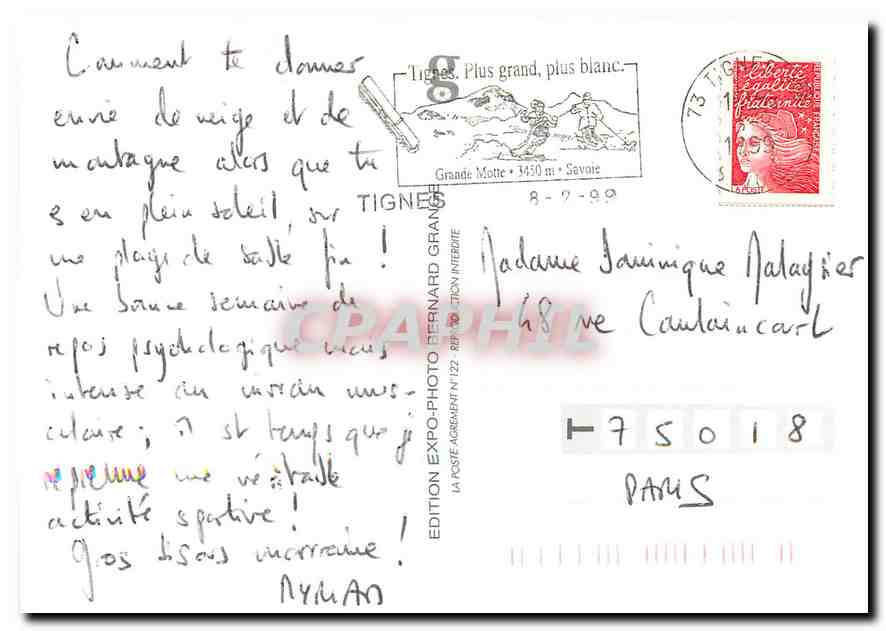 Comment te donner
envie de neige et de
montagne alors que tu
es en plein soleil, sur
une plage de sable fin !
Une bonne semaine de
repos psychologique mais
intense au niveau mus-
culaire ; il est temps que je
reprenne une véritable
activité sportive !
Gros bisous marraine !
MYRIAD
Tignes. Plus grand, plus blanc.
Grande Motte • 3450 m • Savoie
TIGNES
8-2-99
73 TIGNES
liberté
égalité
fraternité
RÉPUBLIQUE FRANÇAISE
LA POSTE
EDITION EXPO-PHOTO BERNARD GRANGE
LA POSTE AGREMENT N° 122 - REPRODUCTION INTERDITE
CPAPHIL
Madame Dominique
48 rue Caulaincourt
T 75018
PARIS